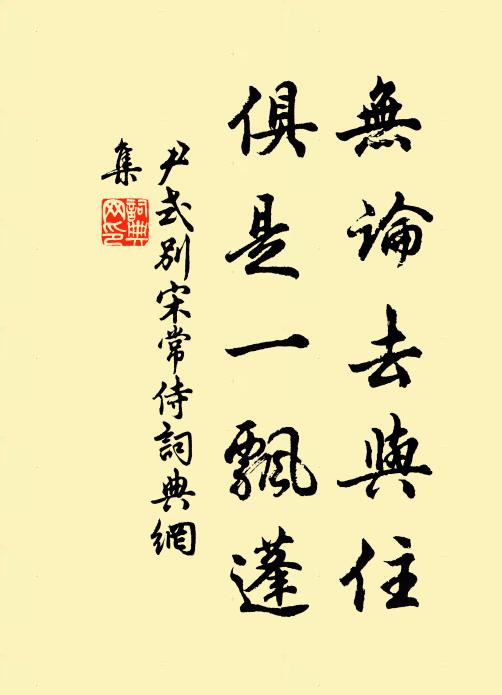 無論去與住
俱是一飄蓬
尹式別宋常侍詞典網
集
詞典
网印